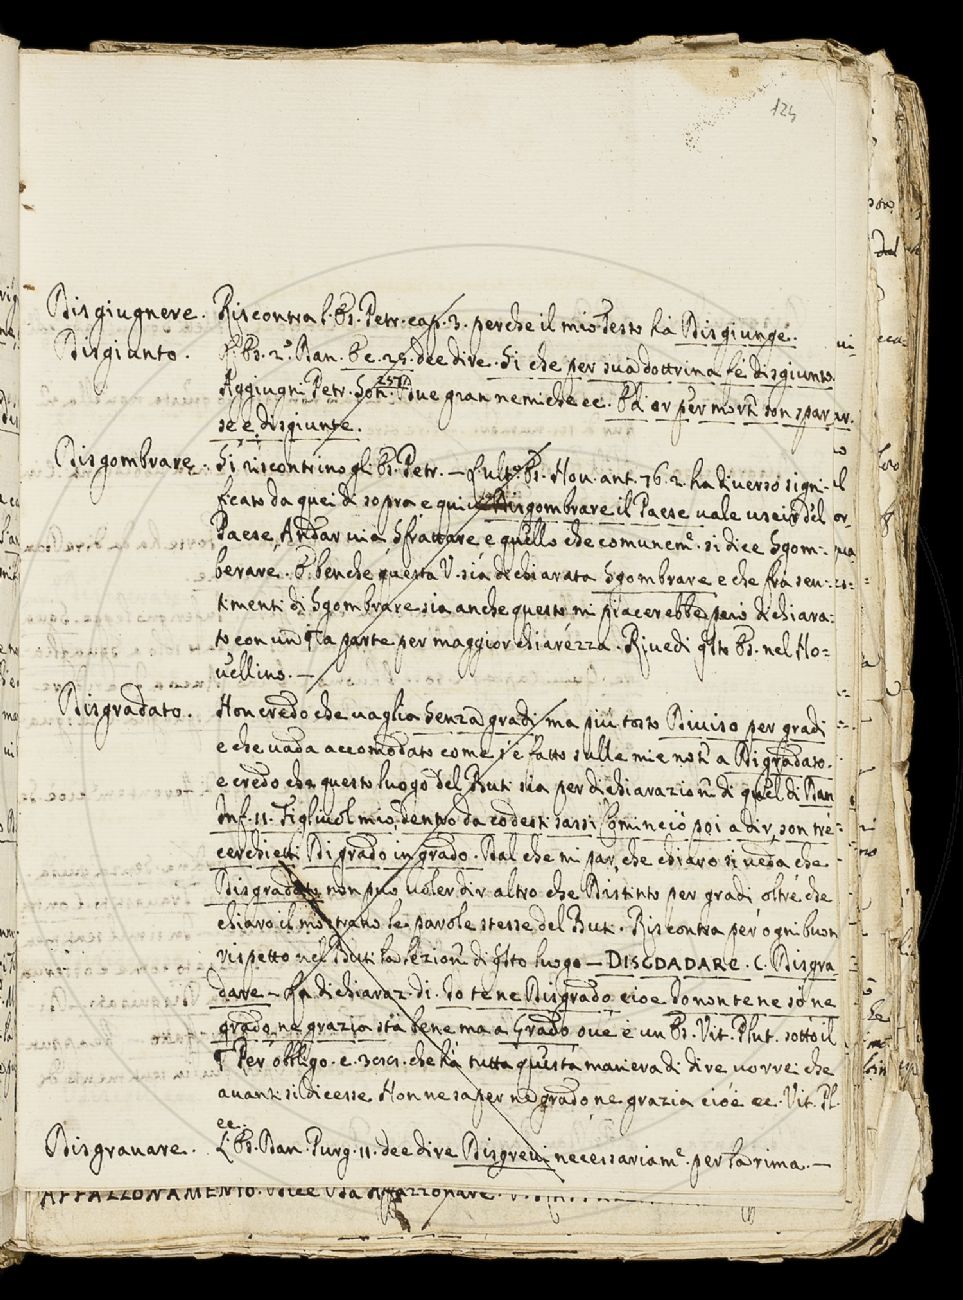 125
Disgiugnere. Riscontra l. Es. Petr. cap. 3. perche il mio Testo ha Disgiunge.
Disgiunto. L. Es. 2.º Dan. Be. 25. dee dire. Si che per sua dottrina fe disgiunto.
Aggiugni Petr. Son. 257. Due gran nemiche ec. Ed or per mort. son spar
se e disgiunte.
Disgombrare. Si riscontrino gl. Es. Petr. – L'ulto Es. Nov. ant. 76. 2. ha diverso signi-
ficato da quei di sopra, e quivi Disgombrare il Paese vale uscir del
Paese, Andar via Sfrattare e quello che comunem.e si dice Sgom-
berare. E benche questa V. sia dichiarata Sgombrare e che fra sen-
timenti di Sgombrare sia anche questo mi piacerebbe però dichiara-
to con un ¶ta parte per maggior chiarezza. Rivedi qsto Es. nel No-
vellino. –
Disgradato. Non credo che vaglia Senza gradi ma più tosto Diviso per gradi
e che vada accomodato come s'è fatto sulle mie not. a Digradato.
e credo che questo luogo del Buti sia per dichiarazion di quel di Dan
Inf. 11. Figliuol mio, dentro da codesti sassi Cominciò poi a dir, son tre
cerchietti Di grado in grado. Dal che mi par, che chiaro si veda che
Disgradato non può voler dir altro che Distinto per gradi oltre che
chiaro il mostrano le parole stesse del Buti. Riscontra però ogni buon
rispetto nel Buti la lezion di qsto luogo – DISGDADARE. C. Disgra
dare – La dichiaraz. di. Io te ne Disgrado cioe Io non te ne so ne
grado, ne grazia sta bene ma a Grado ove è un Es. Vit. Plut. sotto il
¶ Per obbligo. e. 3 che ha tutta questa maniera di dire vorrei che
avanti si dicesse Non ne saper ne grado ne grazia cióe ec. Vit. Pl.
ec.
Disgravare. L. Es. Dan. Purg. 11. dee dire Disgrevi necessariam.e per la rima. –
APPAZZONAMENTO.